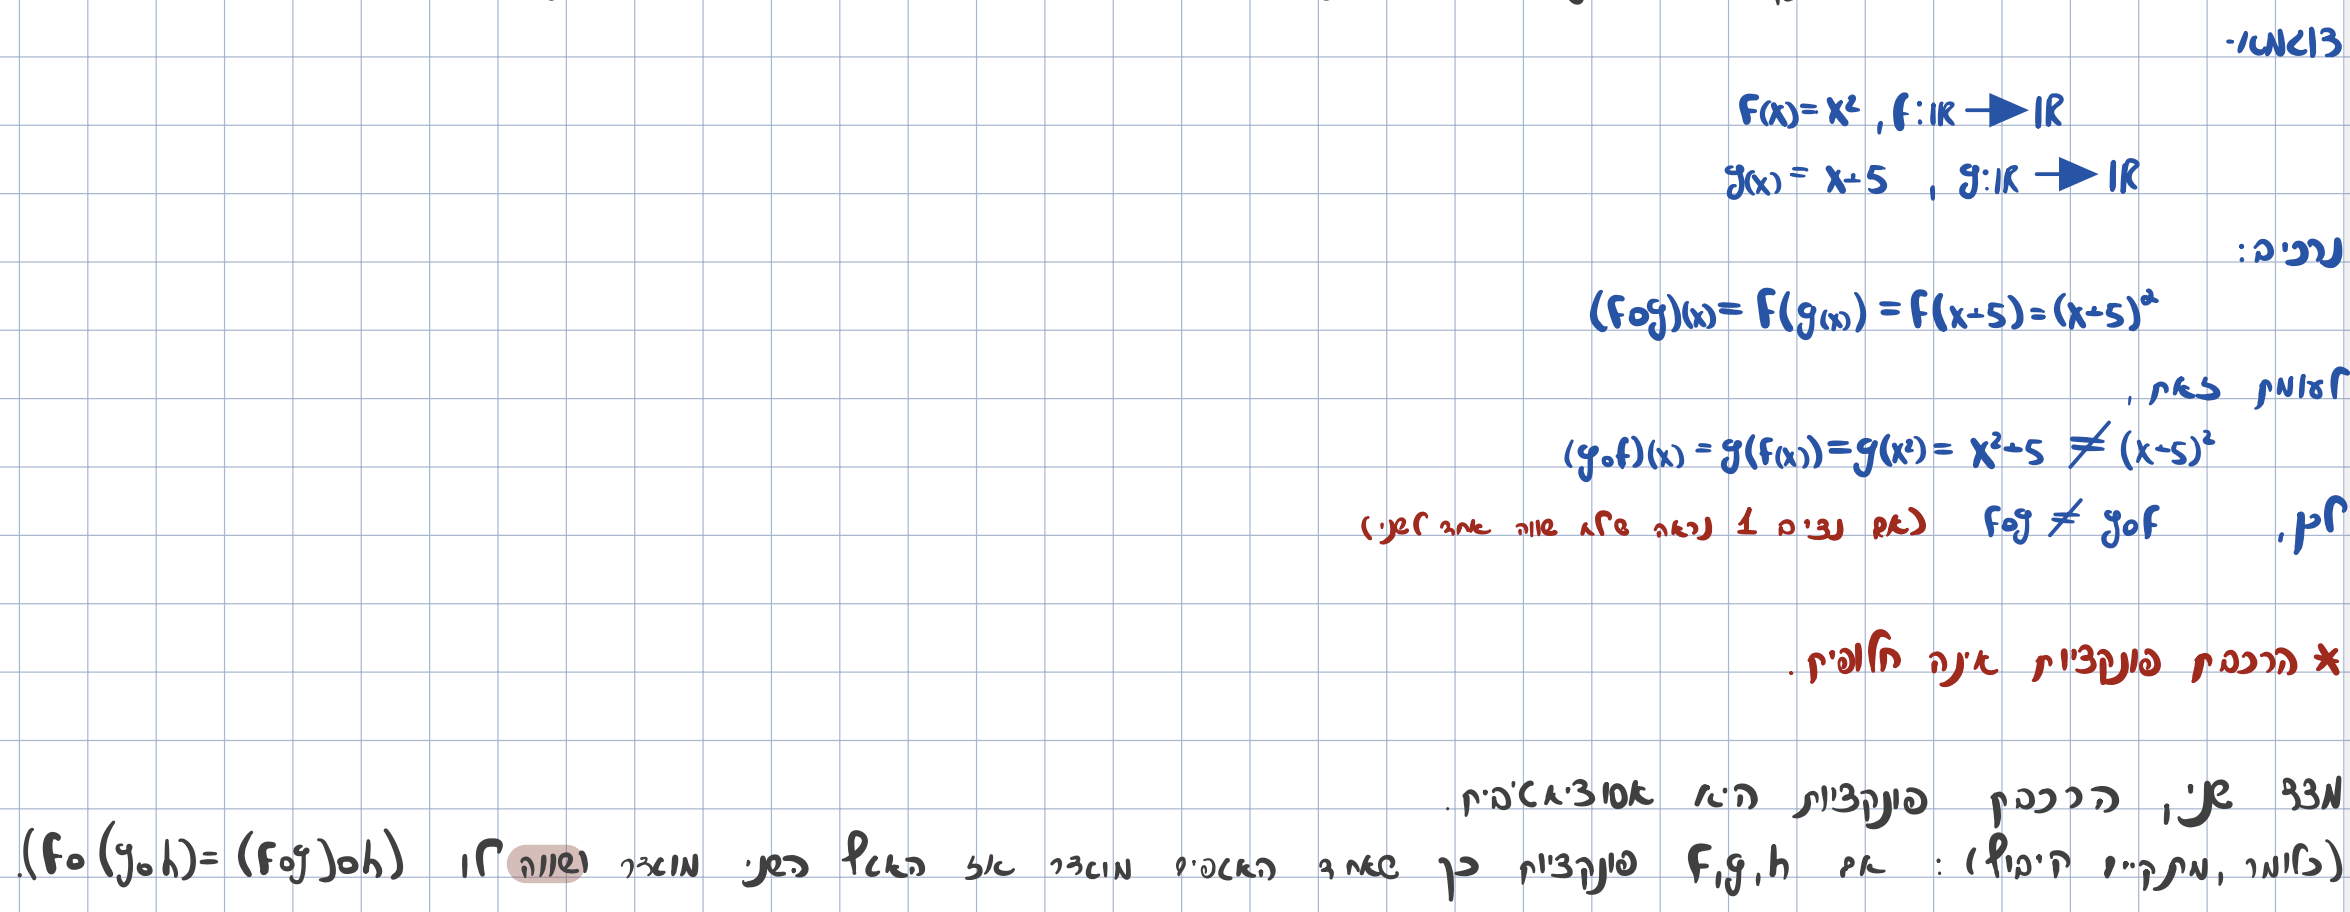 דוגמא-
F(x)=x², f:ℝ → ℝ
g(x) = x+5 , g:ℝ → ℝ
נרכיב:
(F∘g)(x)= F(g(x)) = F(x+5) = (x+5)²
לעומת זאת,
(g∘f)(x) = g(f(x)) = g(x²) = x²+5 ≠ (x+5)²
לכן, F∘g ≠ g∘F (אם נציב 1 נראה שלא שווה אחד לשני)
* הרכבת פונקציות אינה חלופית.
מצד שני, הרכבת פונקציות היא אסוציאטיבית.
(כלומר, מתקיים קיבוץ): אם F,g,h פונקציות כך שאחד האגפים מוגדר אז האגף השני מוגדר ושווה לו (F∘(g∘h)= (F∘g)∘h).